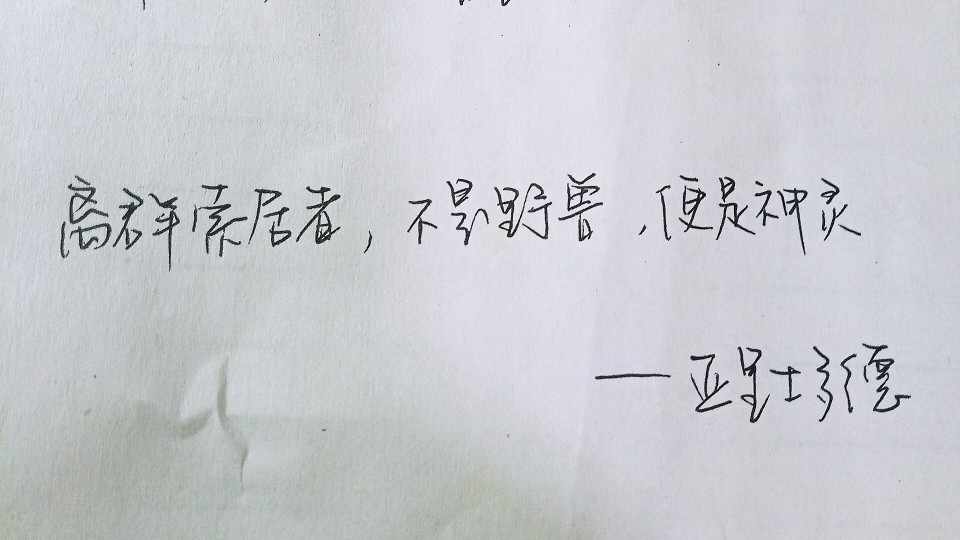 离群索居者，不是野兽，便是神灵
——亚里士多德